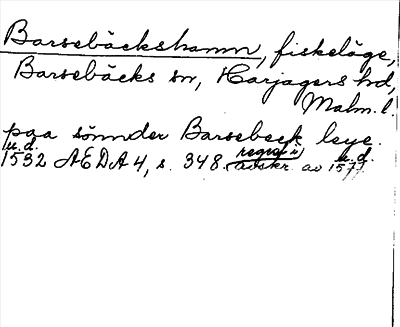 Barsebäckshamn, fiskeläge,
Barsebäcks sn, Harjagers hd,
Malm. l.
paa sönnder Barsebeck leye.
u.d.
1532 AEDA 4, s. 348. (avskr. av 1577
u.d.